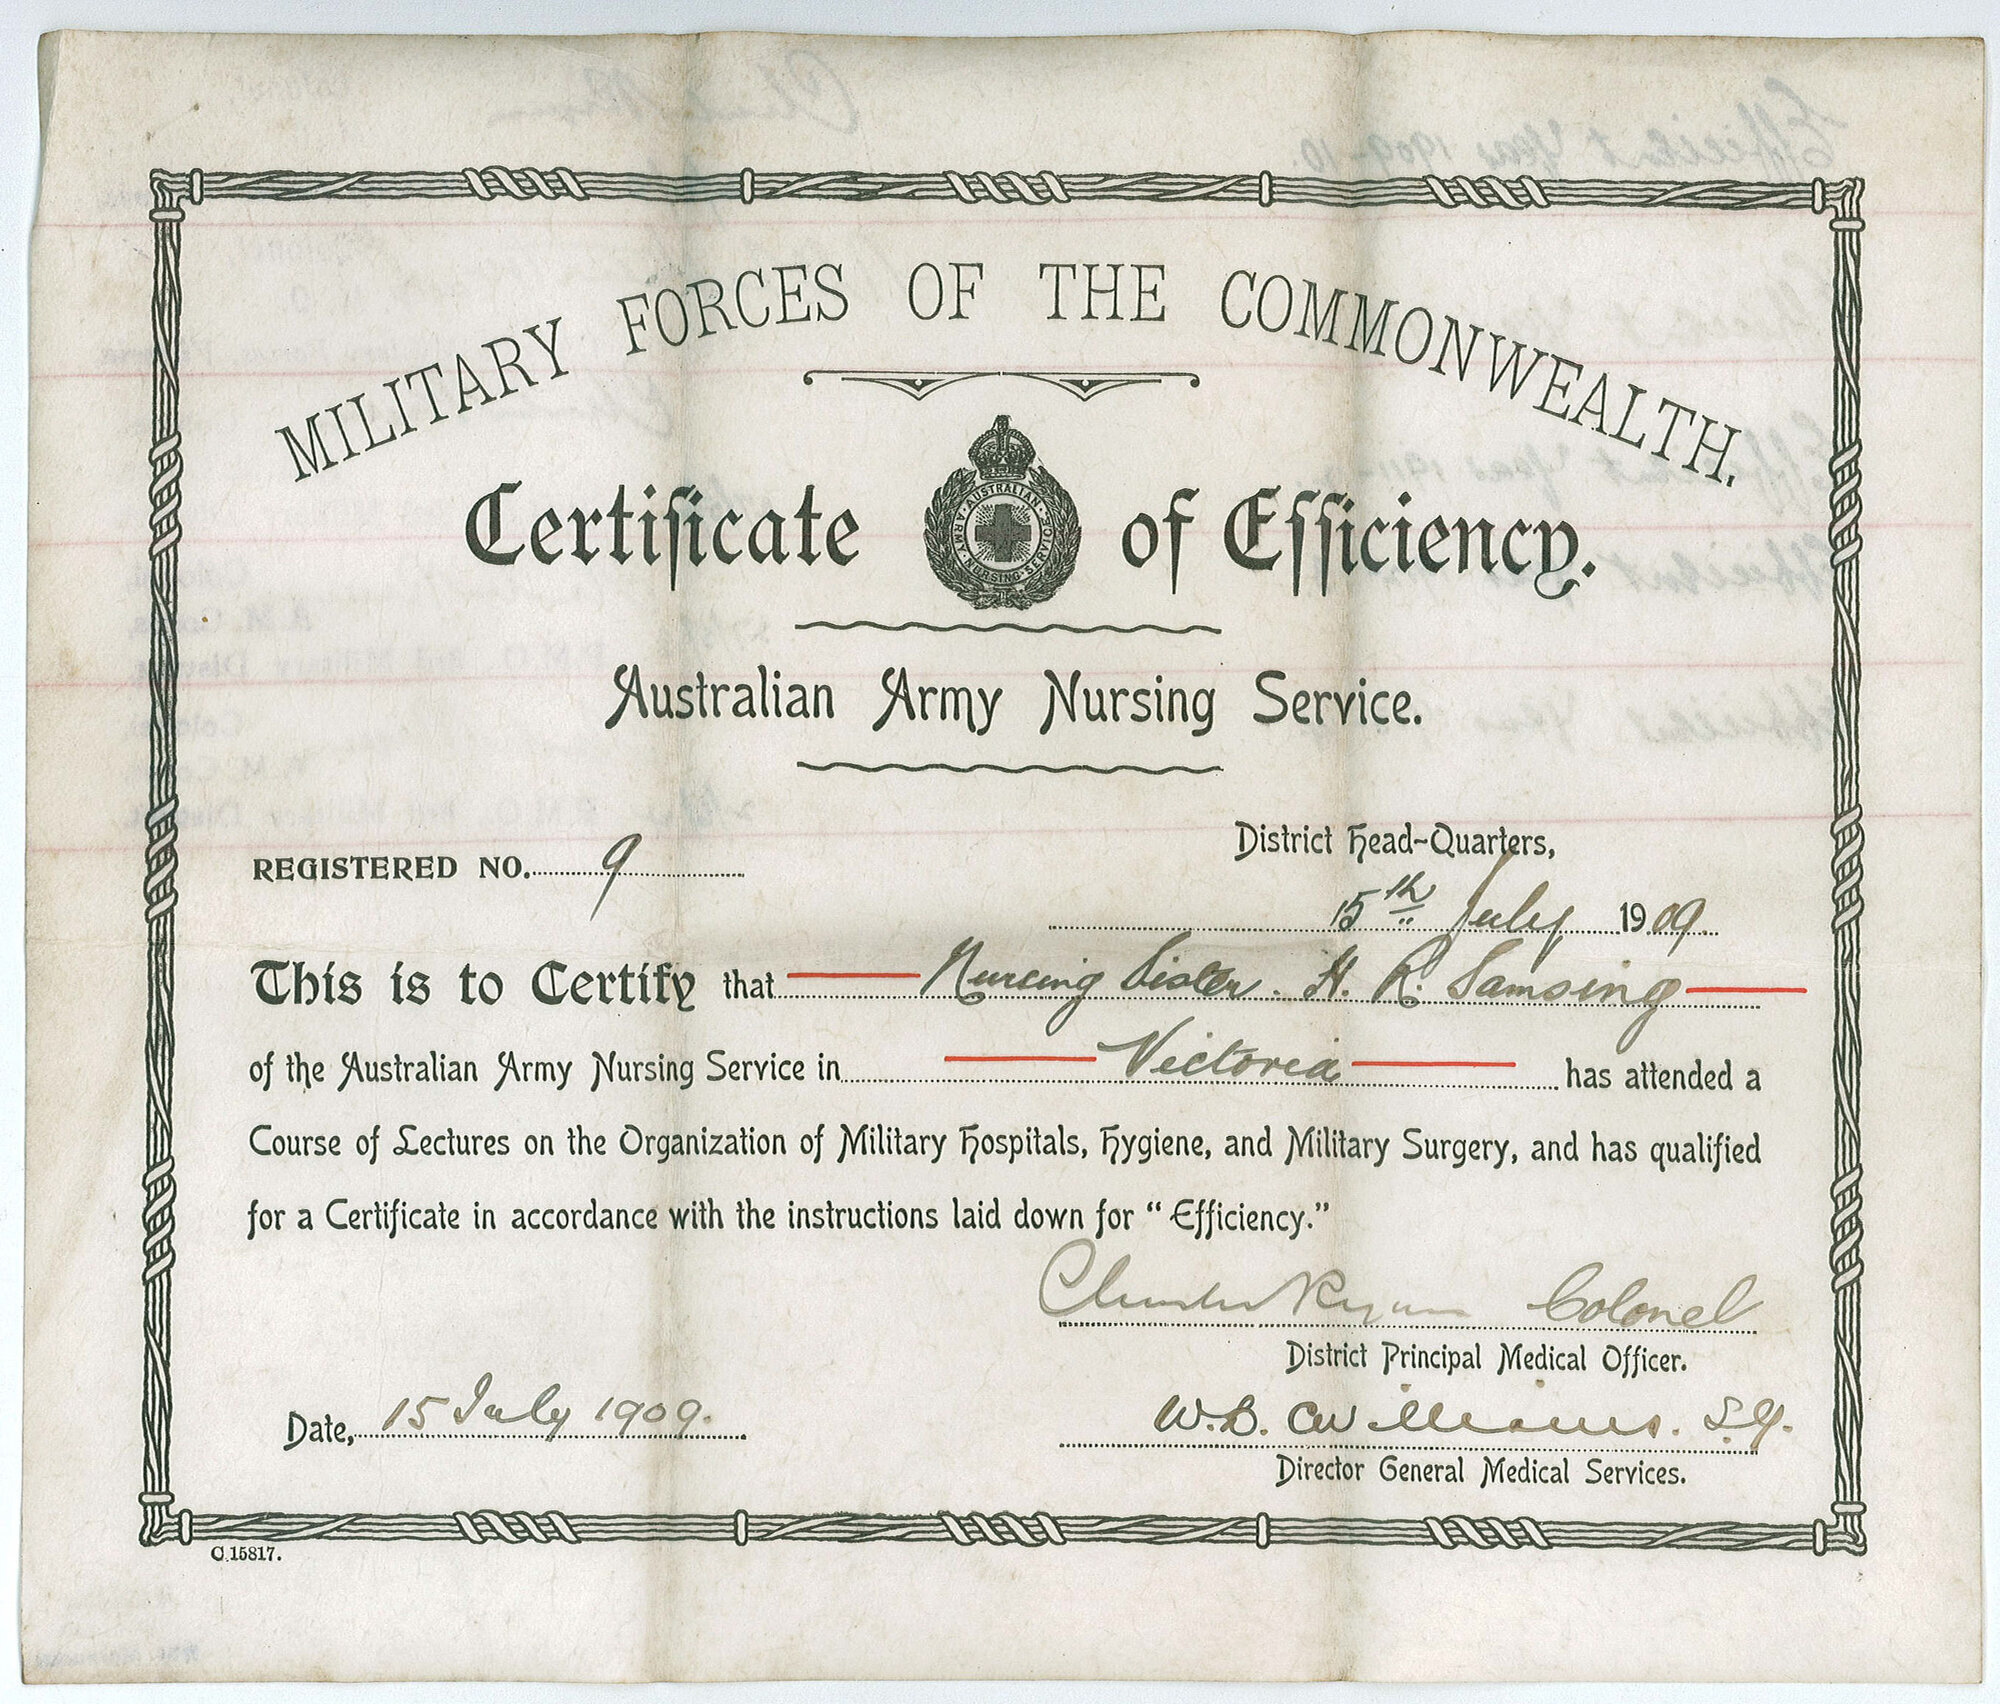 MILITARY FORCES OF THE COMMONWEALTH.
Certificate of Efficiency.
AUSTRALIAN ARMY NURSING SERVICE
Australian Army Nursing Service.
REGISTERED NO. 9
District Head-Quarters,
15th July 1909.
This is to Certify that Nursing Sister. H. R. Samsing
of the Australian Army Nursing Service in Victoria has attended a
Course of Lectures on the Organization of Military Hospitals, Hygiene, and Military Surgery, and has qualified
for a Certificate in accordance with the instructions laid down for "Efficiency."
Charles Ryan Colonel
District Principal Medical Officer.
Date, 15 July 1909.
W.D. C Williams. S.G.
Director General Medical Services.
C.15817.